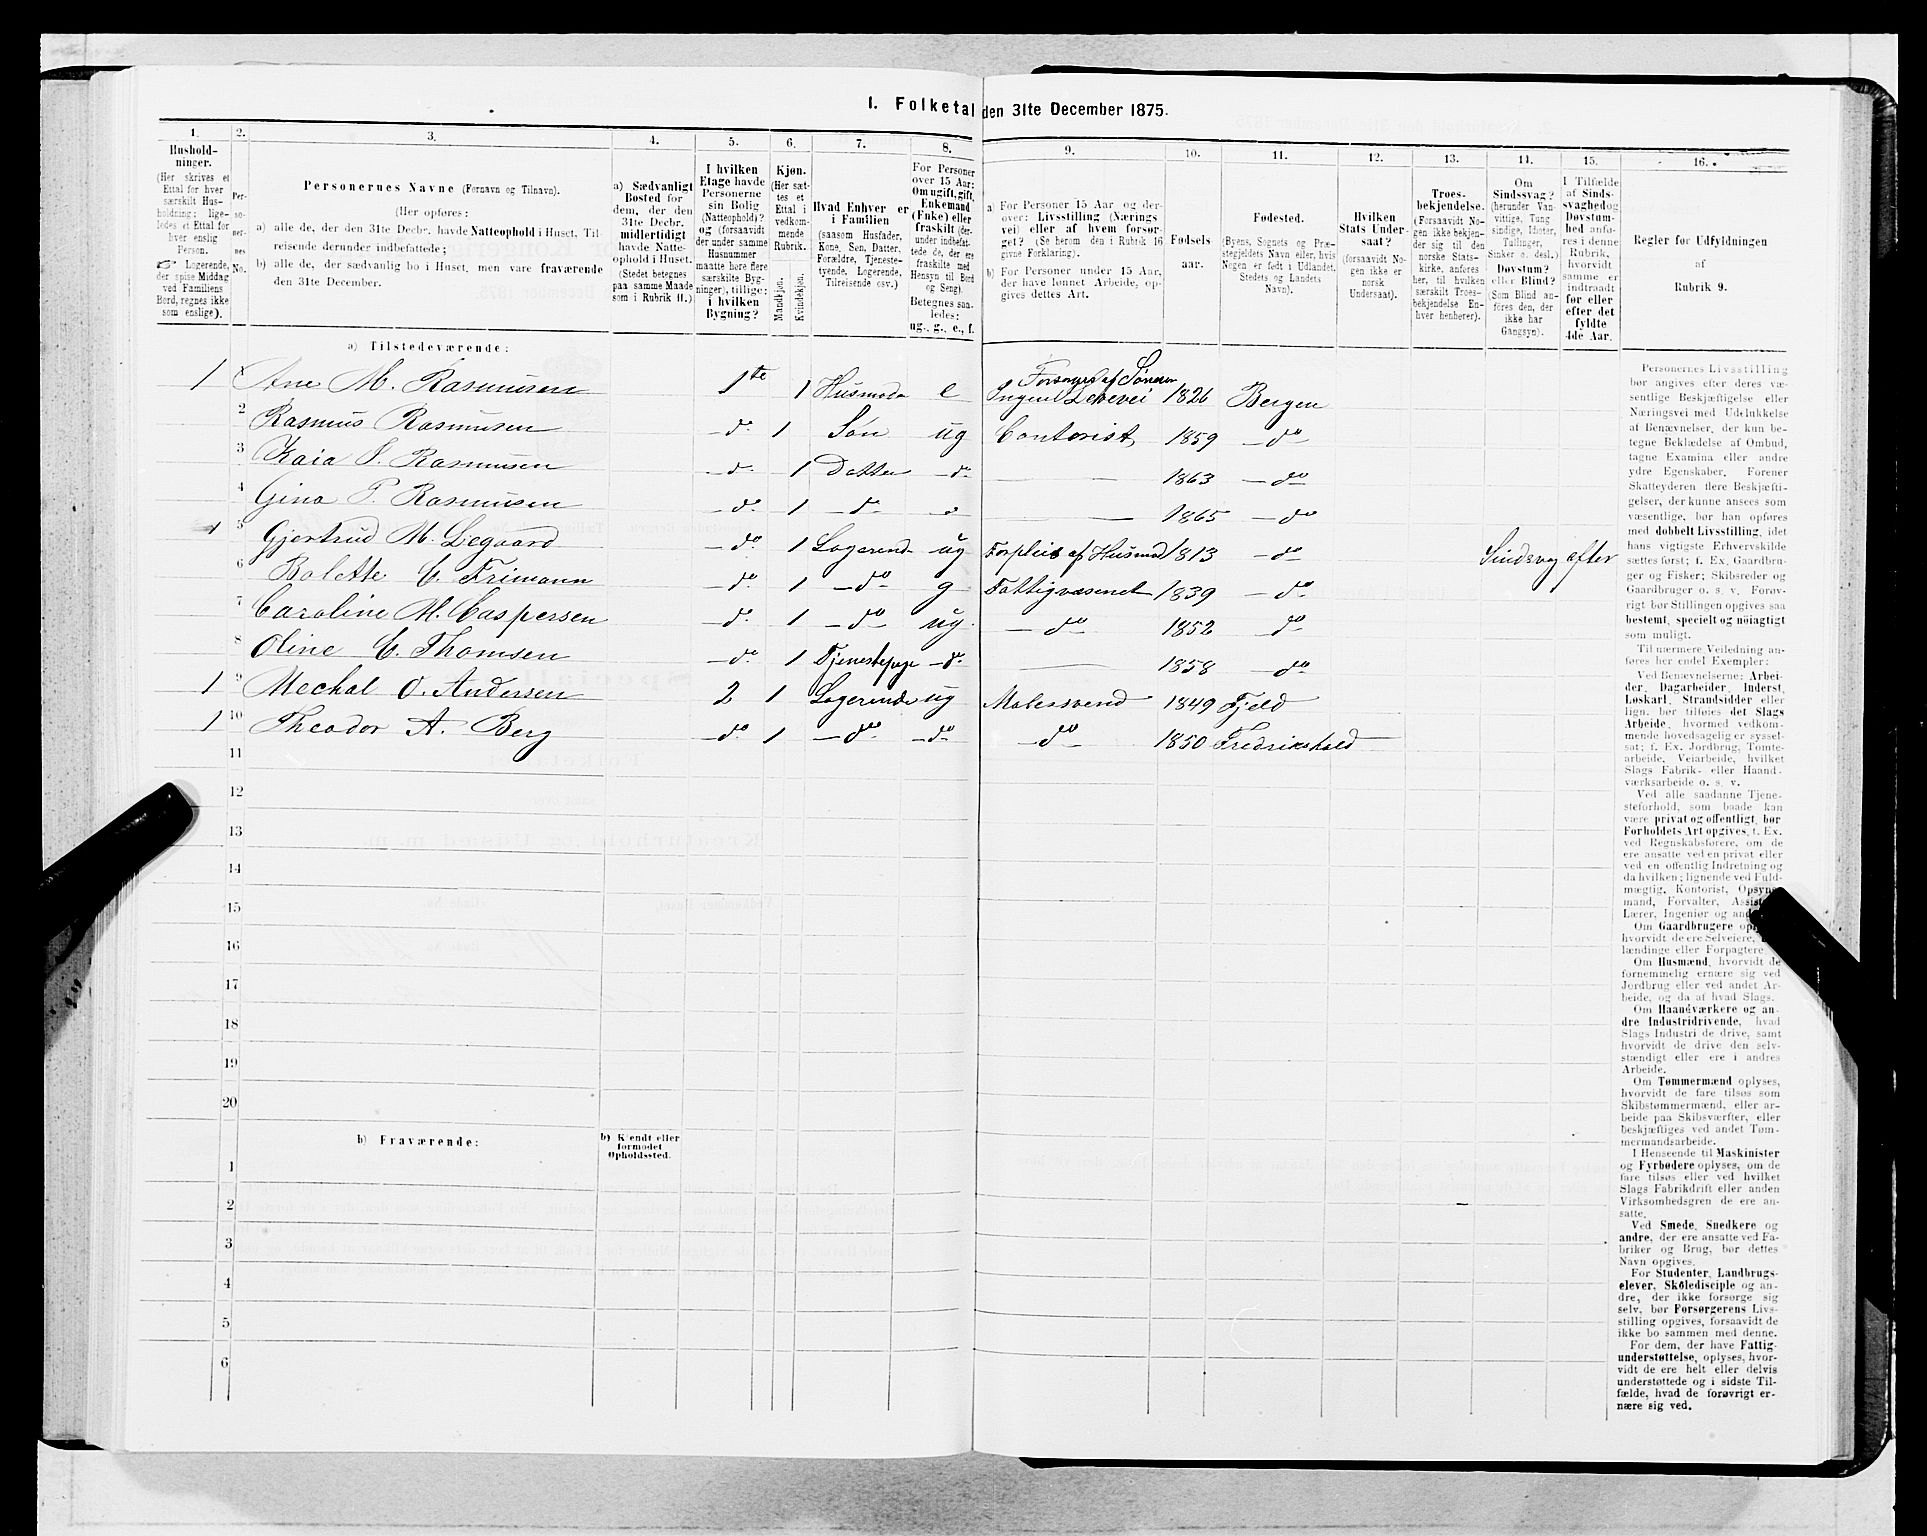 I. Folketal den 31te December 1875.
1. 2. 3. 4. 5. 6. 7. 8. 9. 10. 11. 12. 13. 14. 15. 16.
Hushold-
ninger.
(Her skrives et
Ettal for hver
særskilt Hus-
holdning; lige-
ledes et Ettal for
hver enslig
Person.
Logerende,
der spise Middag
ved Familiens
Bord, regnes ikke
som enslige).
Per-
so-
ner-
nes
No.
Personernes Navne (Fornavn og Tilnavn).
(Her opføres:
a) alle de, der den 31te Decbr. havde Natteophold i Huset, Til-
reisende derunder indbefattede;
b) alle de, der sædvanlig bo i Huset, men vare fraværende
den 31te December.
a) Sædvanligt
Bosted for
dem, der den
31te Decbr.
midlertidigt
havde Natte-
ophold i Huset.
(Stedet betegnes
paa samme Maade
som i Rubrik 11.)
I hvilken
Etage havde
Personerne
sin Bolig
(Natteophold)?
og (forsaavidt
der under samme
Husnummer
maatte høre flere
særskilte Byg-
ninger), tillige:
i hvilken
Bygning?
Kjøn.
(Her sæt-
tes et
Ettal i
vedkom-
mende
Rubrik.
Mandkjøn.
Kvindekjøn.
Hvad Enhver er
i Familien
(saasom Husfader,
Kone, Søn, Datter,
Forældre, Tjeneste-
tyende, Logerende,
Tilreisende osv.)
For Personer
over 15 Aar:
Om ugift, gift,
Enkemand
(Enke) eller
fraskilt (der-
under indbefat-
tede de, der ere
fraskilte med
Hensyn til Bord
og Seng).
Betegnes saa-
ledes:
ug., g., e., f.
a) For Personer 15 Aar og der-
over: Livsstilling (Nærings
vei) eller af hvem forsør-
get? (Se herom den i Rubrik 16
givne Forklaring).
b) For Personer under 15 Aar,
der have lønnet Arbeide, op-
gives dettes Art.
Fødsels
aar.
Fødested.
(Byens, Sognets og Præ-
stegjeldets Navn eller, hvis
Nogen er født i Udlandet,
Stedets og Landets
Navn).
Hvilken
Stats Under-
saat?
(forsaavidt No-
gen ikke er
norsk
Undersaat).
Troes-
bekjendelse.
(Forsaavidt No-
gen ikke bekjen-
der sig til den
norske Stats-
kirke, anføres
her, til hvilken
særskilt Troes-
bekjendelse En-
hver henhører).
Om
Sindssvag?
(herunder Van-
vittige, Tung
sindige, Idioter,
Tullinger,
Sinker o. desl.)
Døvstum?
eller Blind?
(Som Blind an-
føres den, der
ikke har
Gangsyn).
I Tilfælde
af Sinds-
svaghed og
Døvstum-
hed anfø-
res i denne
Rubrik,
hvorvidt
samme er
indtraadt
før eller
efter det
fyldte
4de Aar.
Regler før Udfyldningen
af
Rubrik 9.
a) Tilstedeværende:
Forsørges af Sønnen
1 Ane M. Rasmusen 1te 1 Husmoder e Ingen Levevei 1826 Bergen
2 Rasmus Rasmusen do 1 Søn ug Contorist 1859 do
3 Kaia S. Rasmusen do 1 Datter do 1863 do
4 Gina P. Rasmusen do 1 do 1865 do
1 5 Gjertrud M. Legaard do 1 Logerend ug Forpleies af Husmod 1813 do Sindsvag efter
6 Bolette C. Frimann do 1 do g Fattigvæsenet 1839 do
7 Caroline M. Caspersen do 1 do ug. do 1852 do
8 Oline C. Thomsen do 1 Tjenestepige do 1858 do
1 9 Mechal O. Andersen 2 1 Logerende ug Malersvend 1849 Fjeld
1 10 Theodor A. Berg do 1 do do do 1850 Fredrikshald
11
12
13
14
15
16
17
18
19
20
b) Fraværende:
b) Kjendt eller
formodet
Opholdssted.
1
2
3
4
5
6
Personernes Livsstilling
bør angives efter deres væ-
sentlige Beskjæftigelse eller
Næringsvei med Udelukkelse
af Benævnelser, der kun be-
tegne Beklædelse af Ombud,
tagne Examina eller andre
ydre Egenskaber. Forener
Skatteyderen flere Beskjæfti-
gelser, der kunne ansees som
væsentlige, bør han opføres
med dobbelt Livsstilling, idet
hans vigtigste Erhvervskilde
sættes først; f. Ex. Gaardbru-
ger og Fisker; Skibsreder og
Gaardbruger o. s. v. Forøv-
rigt bør Stillingen opgives saa
bestemt, specielt og nöiagtigt
som muligt.
Til nærmere Veiledning an-
føres her endel Exempler:
Ved Benævnelserne: Arbei-
der, Dagarbeider, Inderst,
Løskarl, Strandsidder eller
lign. bør tilføies det Slags
Arbeide, hvormed vedkom-
mende hovedsagelig er syssel-
sat; f. Ex. Jordbrug, Tomte-
arbeide, Veiarbeide, hvilket
Slags Fabrik- eller Haand-
værksarbeide o. s. v.
Ved alle saadanne Tjene-
steforhold, som baade kan
være privat og offentligt, bør
Forholdets Art opgives, f. Ex.
ved Regnskabsførere, om de
ere ansatte ved en privat eller
ved en offentlig Indretning og
da hvilken; lignende ved Fuld-
mægtig, Kontorist, Opsyns-
mand, Forvalter,
Lærer, Ingeniør og
Om Gaardbrugere
hvorvidt de ere Selveiere,
lændinge eller Forpagtere
Om Husmænd, hvorvidt de
fornemmelig ernære sig ved
Jordbrug eller ved andet Ar-
beide, og da af hvad Slags.
Om Haandværkere og an-
dre Industridrivende, hvad
Slags Industri de drive, samt
hvorvidt de drive den selv-
stændigt eller ere i andres
Arbeide.
Om Tømmermænd oplyses,
hvorvidt de fare tilsøs som
Skibstømmermænd, eller ar-
beide paa Skibsværfter, eller
beskjæftiges ved andet Tøm-
mermandsarbeide.
I Henseende til Maskinister
og Fyrbødere oplyses, om de
fare tilsøs eller ved hvilket
Slags Fabrikdrift eller anden
Virksomhedsgren de ere an-
satte.
Ved Smede, Snedkere og
andre, der ere ansatte ved Fa-
briker og Brug, bør dettes
Navn opgives.
For Studenter, Landbrugs-
elever, Skoledisciple og an-
dre, der ikke forsørge sig
selv, bør Forsørgerens Livs-
stilling opgives, forsaavidt de
ikke bo sammen med denne.
For dem, der have Fattig-
understøttelse, oplyses, hvor-
vidt de ere helt eller delvis
understøttede og i sidste Til-
fælde, hvad de forøvrigt er-
nære sig ved.